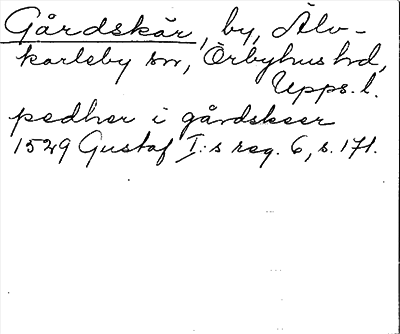 Gårdskär, by, Älv-
karleby sn, Örbyhus hd,
Upps. l.
pedher i gårdskeer
1529 Gustaf I:s reg. 6, s. 171.